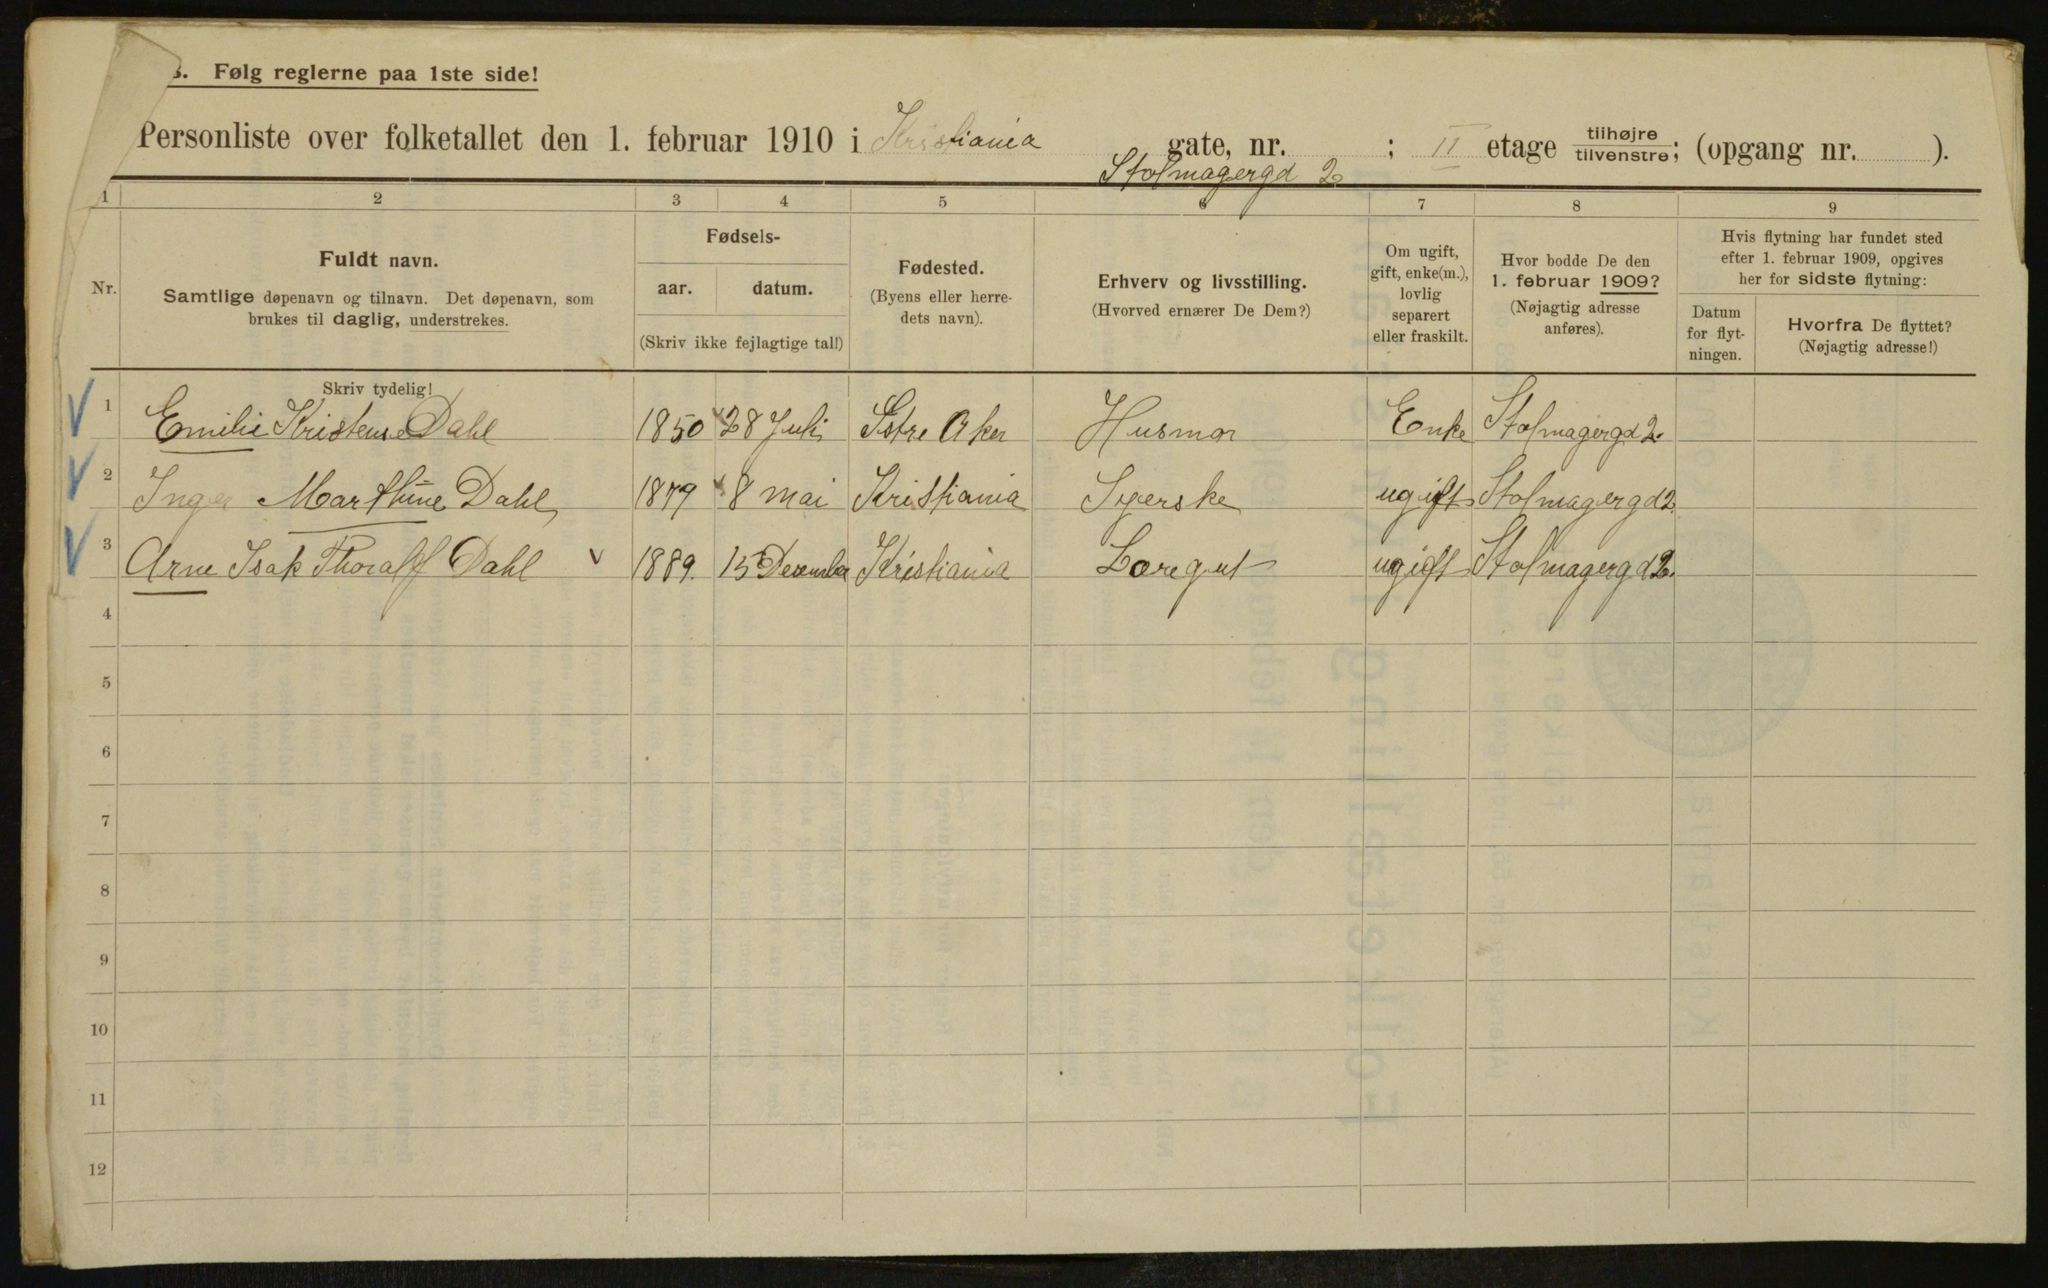 s. Følg reglerne paa 1ste side!
Personliste over folketallet den 1. februar 1910 i Kristiania gate, nr. ; II etage tilhøjre/tilvenstre; (opgang nr. ).
Stolmagergd 2
1 2 3 4 5 6 7 8 9
Nr.
Fuldt navn.
Samtlige døpenavn og tilnavn. Det døpenavn, som
brukes til daglig, understrekes.
Skriv tydelig!
Fødsels-
aar. datum.
(Skriv ikke fejlagtige tal!)
Fødested.
(Byens eller herre-
dets navn).
Erhverv og livsstilling.
(Hvorved ernærer De Dem?)
Om ugift,
gift, enke(m.),
lovlig
separert
eller fraskilt.
Hvor bodde De den
1. februar 1909?
(Nøjagtig adresse
anføres).
Hvis flytning har fundet sted
efter 1. februar 1909, opgives
her for sidste flytning:
Datum
for flyt-
ningen.
Hvorfra De flyttet?
(Nøjagtig adresse!)
1 Emilie Kristense Dahl 1850 28 Juli Østre Aker Husmor Enke Stolmagergd 2.
2 Inga Marthine Dahl 1879 8 mai Kristiania Syerske ugift Stolmagergd 2.
3 Arne Isak Thoralf Dahl 1889. 15 Desember Kristiania Læregut ugift Stolmagergd 2.
4
5
6
7
8
9
10
11
12